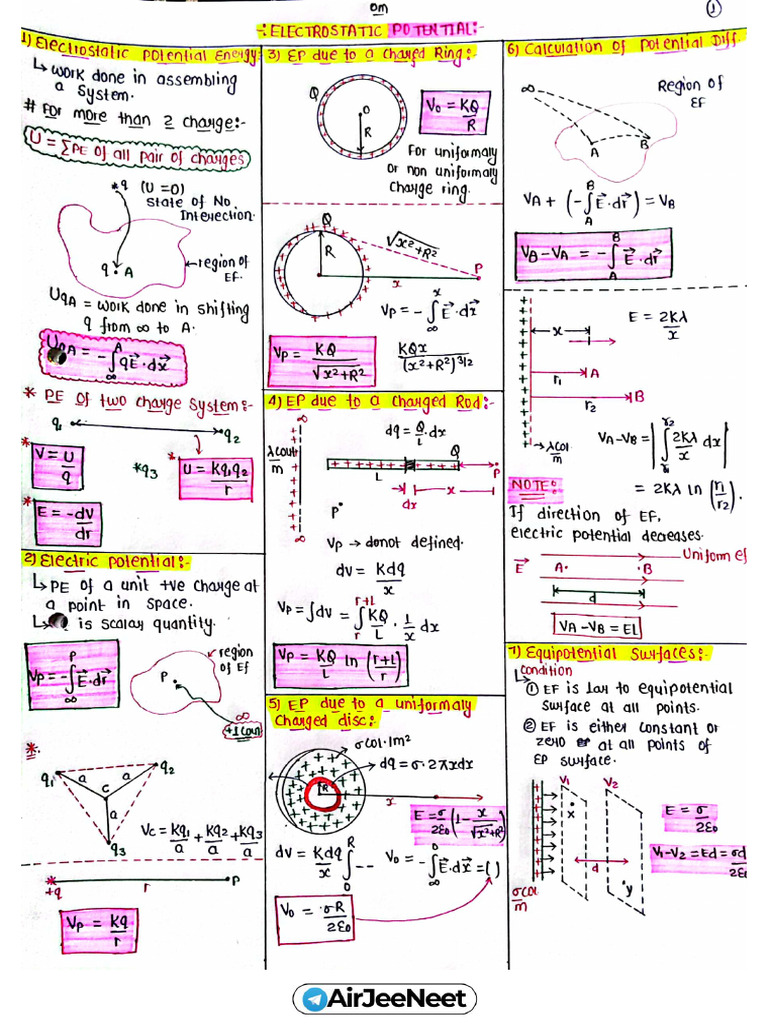 om
1
-: ELECTROSTATIC POTENTIAL:-
1) Electrostatic Potential Energy:
↳ work done in assembling
a System.
# For more than 2 charge:-
U = ΣPE of all pair of charges
q (U=0)
State of No
Interection.
q A
region of
EF.
UqA = work done in shifting
q from ∞ to A.
A = -∫∞^A qE⃗·dx⃗
* PE of two charge System:-
q1 q2
* V = U/q
*q3
* U = Kq1q2/r
* E = -dV/dr
2) Electric potential:-
↳ PE of a unit +ve charge at
a point in space.
↳ is scalar quantity.
Vp = -∫∞^P E⃗·dr⃗
region
of Ef
P
∞
+1 Coul
*.
q1 a a q2
C
a
q3
Vc = Kq1/a + Kq2/a + Kq3/a
+q r P
Vp = Kq/r
3) EP due to a Charged Ring:-
Q
O
R
V0 = KQ/R
For uniformaly
or non uniformaly
Charge ring.
Q
R
√x²+R²
x
P
Vp = -∫∞^x E⃗·dx⃗
Vp = KQ/√x²+R²
KQx/(x²+R²)^3/2
4) EP due to a Charged Rod:-
∞
λcoul/m
∞
dq = Q/L·dx
Q
L
P
dx
x
P
Vp → donot defined.
dv = Kdq/x
Vp = ∫dv = ∫r^r+L KQ/L · 1/x dx
Vp = KQ/L ln (r+L/r)
5) EP due to a uniformaly
Charged disc:-
σcol·1m²
dq = σ·2πxdx
R
x
E = σ/2ε0 (1 - x/√x²+R²)
dv = Kdq/x ∫0^R --
V0 = -∫∞^0 E⃗·dx⃗ = ( )
V0 = σR/2ε0
6) Calculation of Potential Diff.
∞
Region of
EF
A B
VA + (-∫A^B E⃗·dr⃗) = VB
VB-VA = -∫A^B E⃗·dr⃗
E = 2Kλ/x
x
r1 A
r2 B
λcol/m
VA-VB = |∫r1^r2 2Kλ/x dx|
= 2Kλ ln (r1/r2).
NOTE:
If direction of EF,
electric potential decreases.
Uniform ef
E⃗ A· ·B
d
VA-VB = EL
7) Equipotential Surfaces:-
Condition
① EF is lar to equipotential
surface at all points.
② EF is either constant or
zero at all points of
EP surface.
V1 V2
x
d
y
σcol/m
E = σ/2ε0
V1-V2 = Ed = σd/2ε0
AirJeeNeet